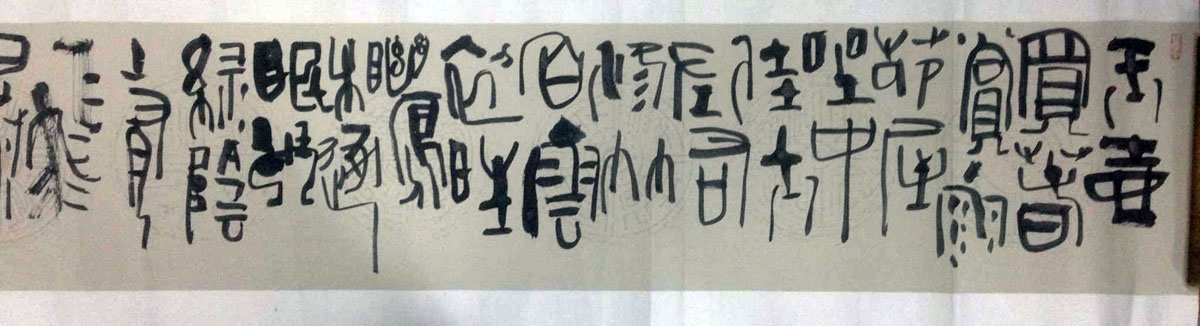 玉壺
買春
賞雨
茆屋
坐中
佳士
左右
修竹
白雲
初晴
幽鳥
相逐
眠琴
綠陰
上有
飛瀑